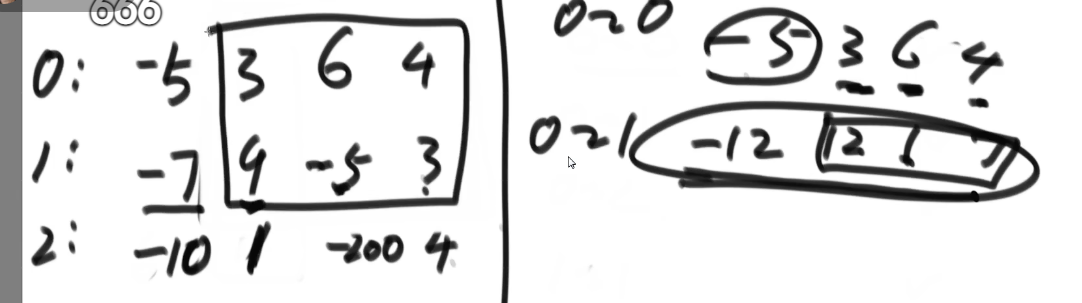 666
0: -5 3 6 4
1: -7 9 -5 3
2: -10 1 -200 4
0~0 -5 3 6 4
0~1 -12 12 1 7